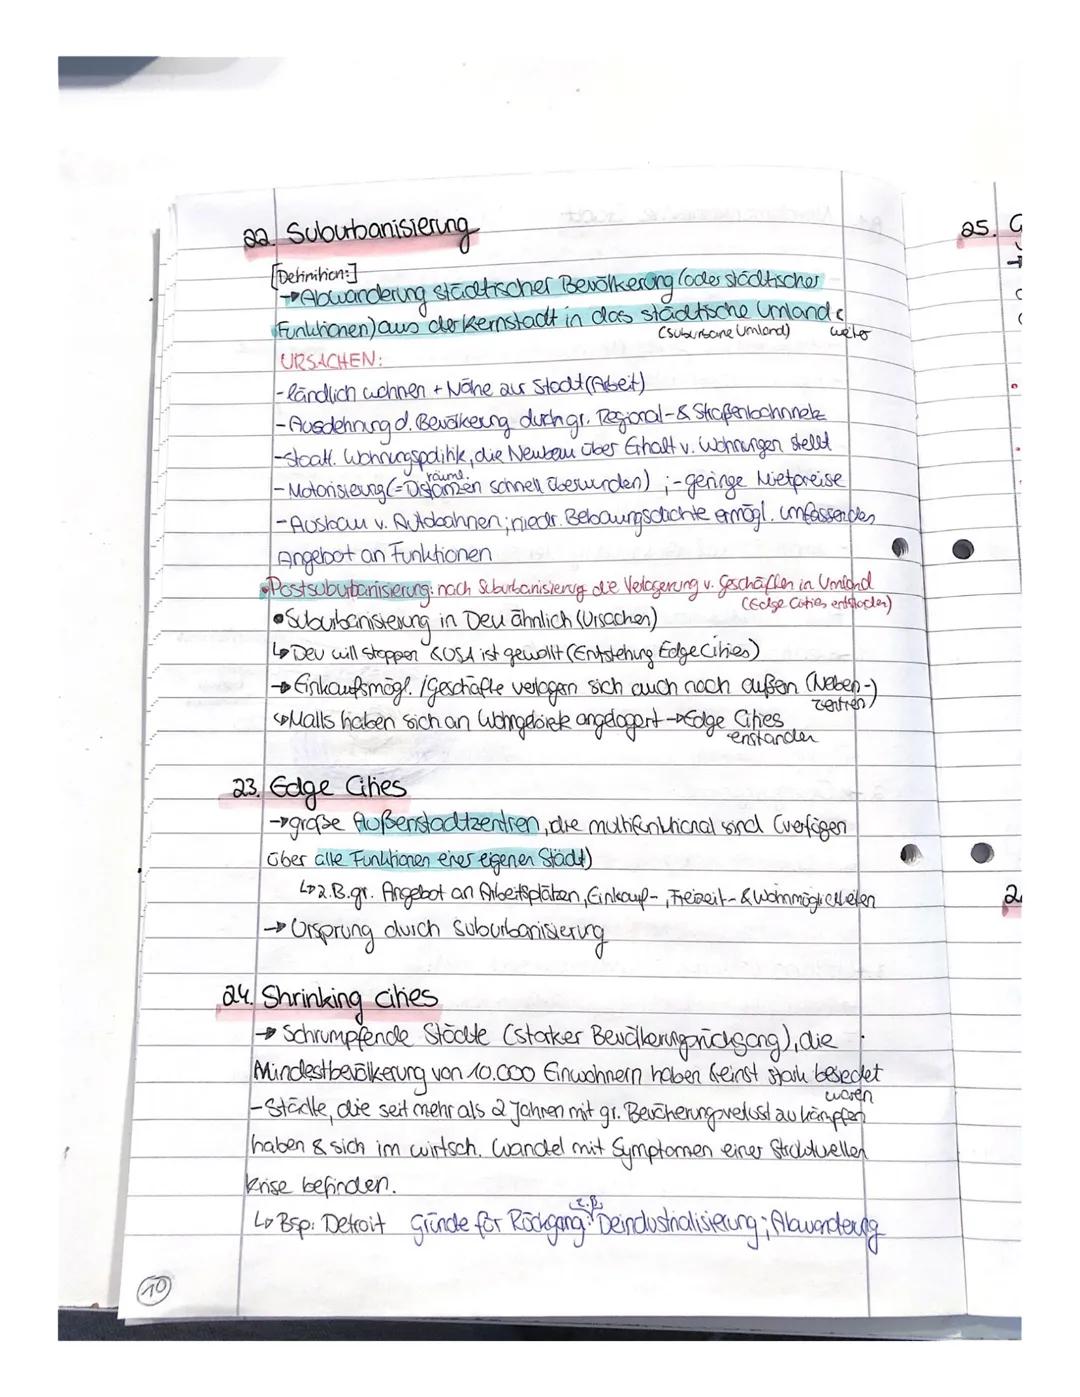 22. Suburbanisierung
[Definition:]
→Abwanderung städtischer Bevölkerung (oder städtischer
Funktionen) aus der Kernstadt in das städtische Umland &
(suburbane Umland) weiter
URSACHEN:
-ländlich wohnen + Nähe zur Stadt (Arbeit)
-Ausdehnung d. Bevölkerung durch gr. Regional-& Straßenbahnnetz
-staatl. Wohnungspolitik, die Neubau über Erhalt v. Wohnungen stellt
-Motorisierung (=räuml. Distanzen schnell überwunden) ;-geringe Mietpreise
-Ausbau v. Autobahnen; niedr. Bebauungsdichte ermögl. umfassendes
Angebot an Funktionen
•Postsuburbanisierung: nach Suburbanisierung die Verlagerung v. Geschäften in Umland
(Edge Cities entstanden)
•Suburbanisierung in Deu ähnlich (Ursachen)
↳Deu will stoppen & USA ist gewollt (Entstehung Edge Cities)
→Einkaufsmögl. / Geschäfte verlagern sich auch nach außen (Neben-
zentren)
↳Malls haben sich an Wohngebiete angelagert →Edge Cities
entstanden
23. Edge Cities
→große Außenstadtzentren, die multifunktional sind (verfügen
über alle Funktionen einer eigenen Stadt)
↳z.B. gr. Angebot an Arbeitsplätzen, Einkauf-, Freizeit- & Wohnmöglichkeiten
→Ursprung durch Suburbanisierung
24. Shrinking cities
→ Schrumpfende Städte (starker Bevölkerungsrückgang), die
Mindestbevölkerung von 10.000 Einwohnern haben & einst stark besiedelt
waren
-Städte, die seit mehr als 2 Jahren mit gr. Bevölkerungsverlust zu kämpfen
haben & sich im wirtsch. Wandel mit Symptomen einer strukturellen
Krise befinden.
↳Bsp: Detroit Gründe für Rückgang: z.B. Deindustrialisierung; Abwanderung
10
25. G